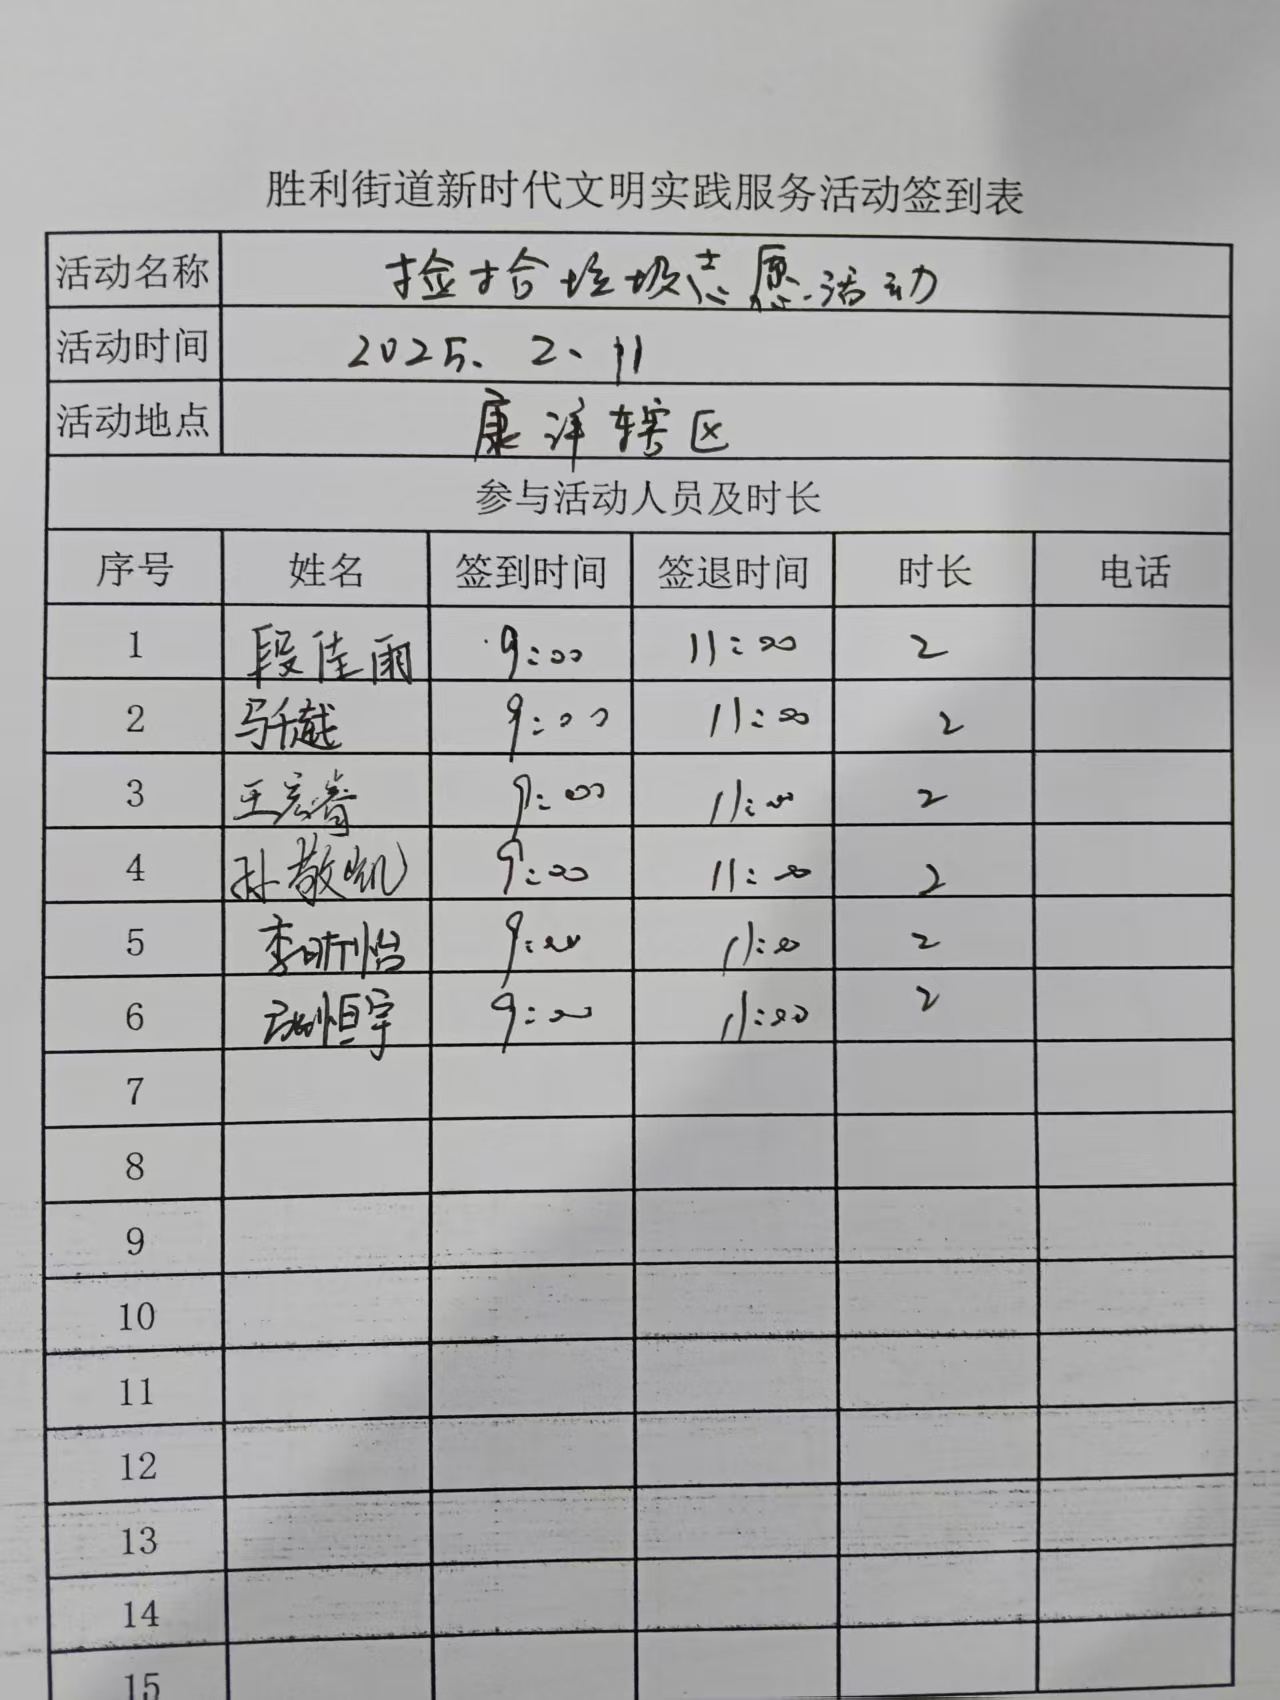 胜利街道新时代文明实践服务活动签到表
活动名称 捡拾垃圾志愿活动
活动时间 2025.2.11
活动地点 康洋辖区
参与活动人员及时长
序号 姓名 签到时间 签退时间 时长 电话
1 段佳雨 9:00 11:00 2
2 马千越 9:00 11:00 2
3 王宏睿 9:00 11:00 2
4 孙敬凯 9:00 11:00 2
5 李时怡 9:00 11:00 2
6 恒宇 9:00 11:00 2
7
8
9
10
11
12
13
14
15